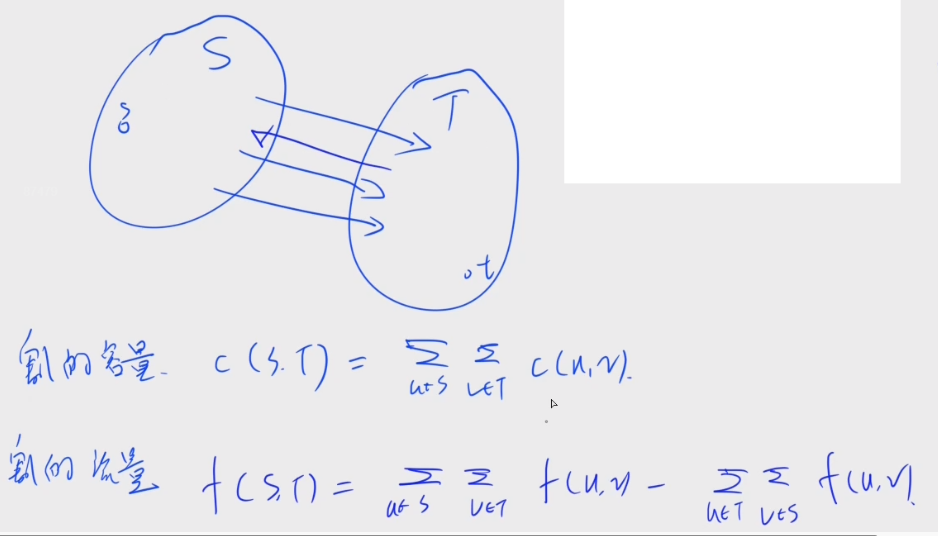 S
T
s
t
割的容量. c(S.T) = ∑u∈S ∑v∈T c(u,v).
割的流量 f(S,T) = ∑u∈S ∑v∈T f(u,v) - ∑u∈T ∑v∈S f(u,v).